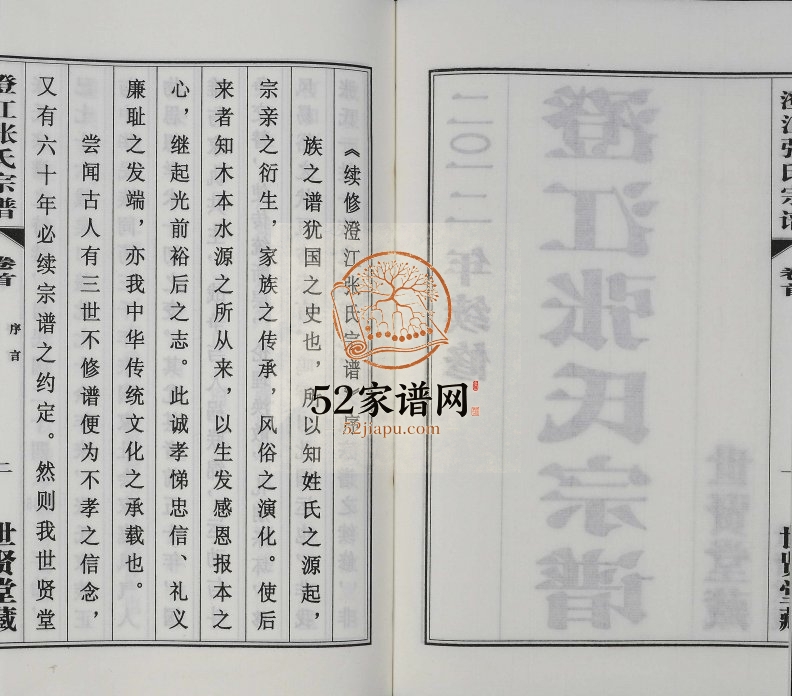 澄江张氏宗谱
卷首
世贤堂藏
世贤堂藏
澄江张氏宗谱
二〇一二年续修
《续修澄江张氏宗谱》序
族之谱犹国之史也，所以知姓氏之源起，
宗亲之衍生，家族之传承，风俗之演化。使后
来者知木本水源之所从来，以生发感恩报本之
心，继起光前裕后之志。此诚孝悌忠信、礼义
廉耻之发端，亦我中华传统文化之承载也。
尝闻古人有三世不修谱便为不孝之信念，
又有六十年必续宗谱之约定。然则我世贤堂
澄江张氏宗谱
卷首
序言
一
世贤堂藏
52家谱网
52jiapu.com